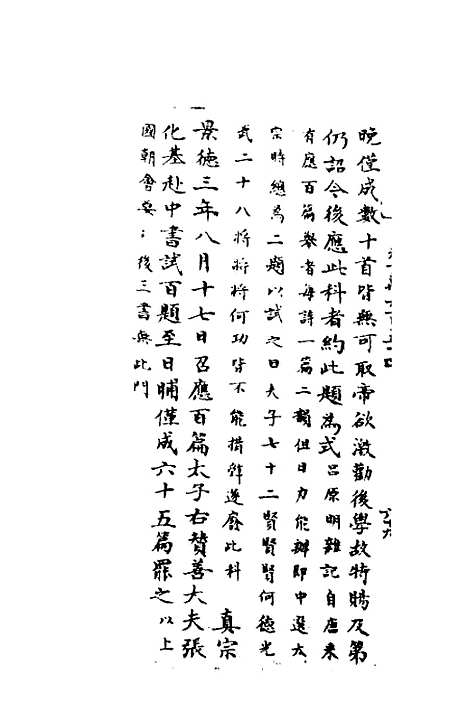 晚僅成數十首皆無可取帝欲激勸後學故特賜及第
仍詔今後應此科者約此題為式呂原明雜記自唐来
有應百篇舉者每詩一篇二韻但日力能辦即中選太
宗時總為二題以試之曰夫子七十二賢賢賢何德光
武二十八將將將何功皆不能措辭遂廢此科 真宗
景德三年八月十七日召應百篇太子右贊善大夫張
化基赴中書試百題至日晡僅成六十五篇罷之以上
國朝會要；後三書無此門